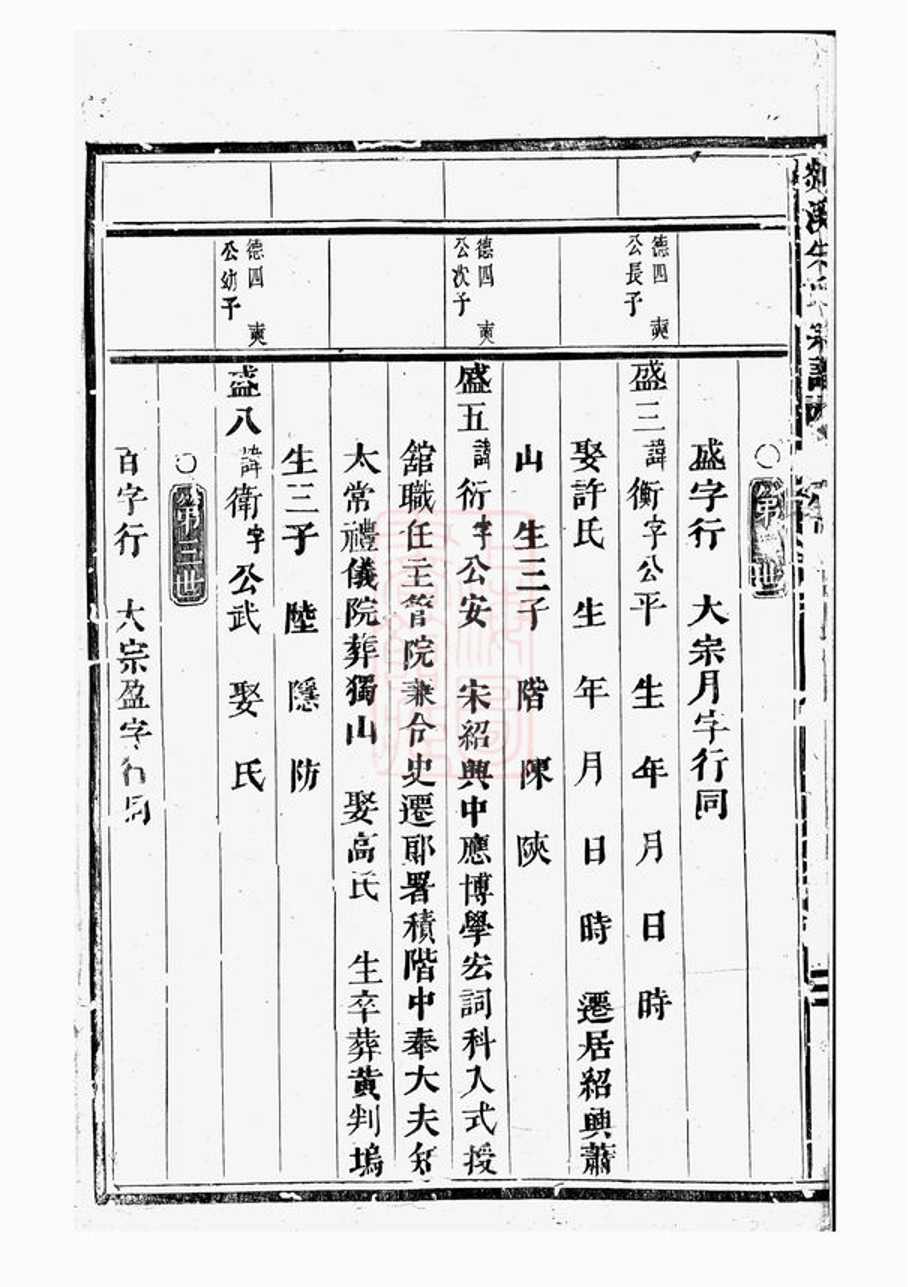 剡溪朱氏宗譜
○第二世
盛字行　大宗月字行同
德四　奭
公長子
盛三諱衡字公平　生　年　月　日　時
娶許氏　生　年　月　日　時　遷居紹興蕭
山　生三子　階　陳　陜
德四　奭
公次子
盛五諱衍字公安　宋紹興中應博學宏詞科入式授
舘職任主管院兼令史遷郎署積階中奉大夫知
太常禮儀院葬獨山　娶高氏　生卒葬黃判塢
生三子　陸　隱　防
德四　奭
公幼子
盛八諱衛字公武　娶　氏
○第三世
百字行　大宗盈字行同